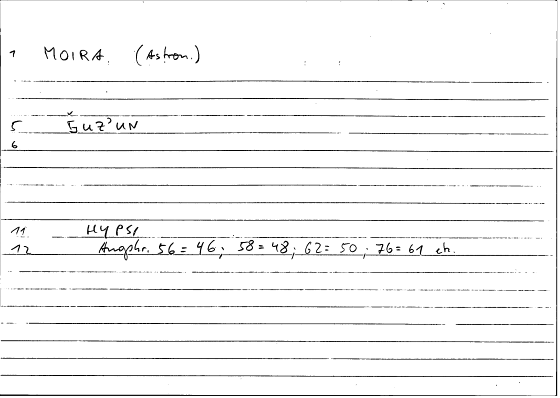 1 MOIRA. (Astron.)
5 ŠUZ'UN
6
11 HYPSI
12 Anaphr. 56 = 46; 58 = 48; 62 = 50; 76 = 61 ch.